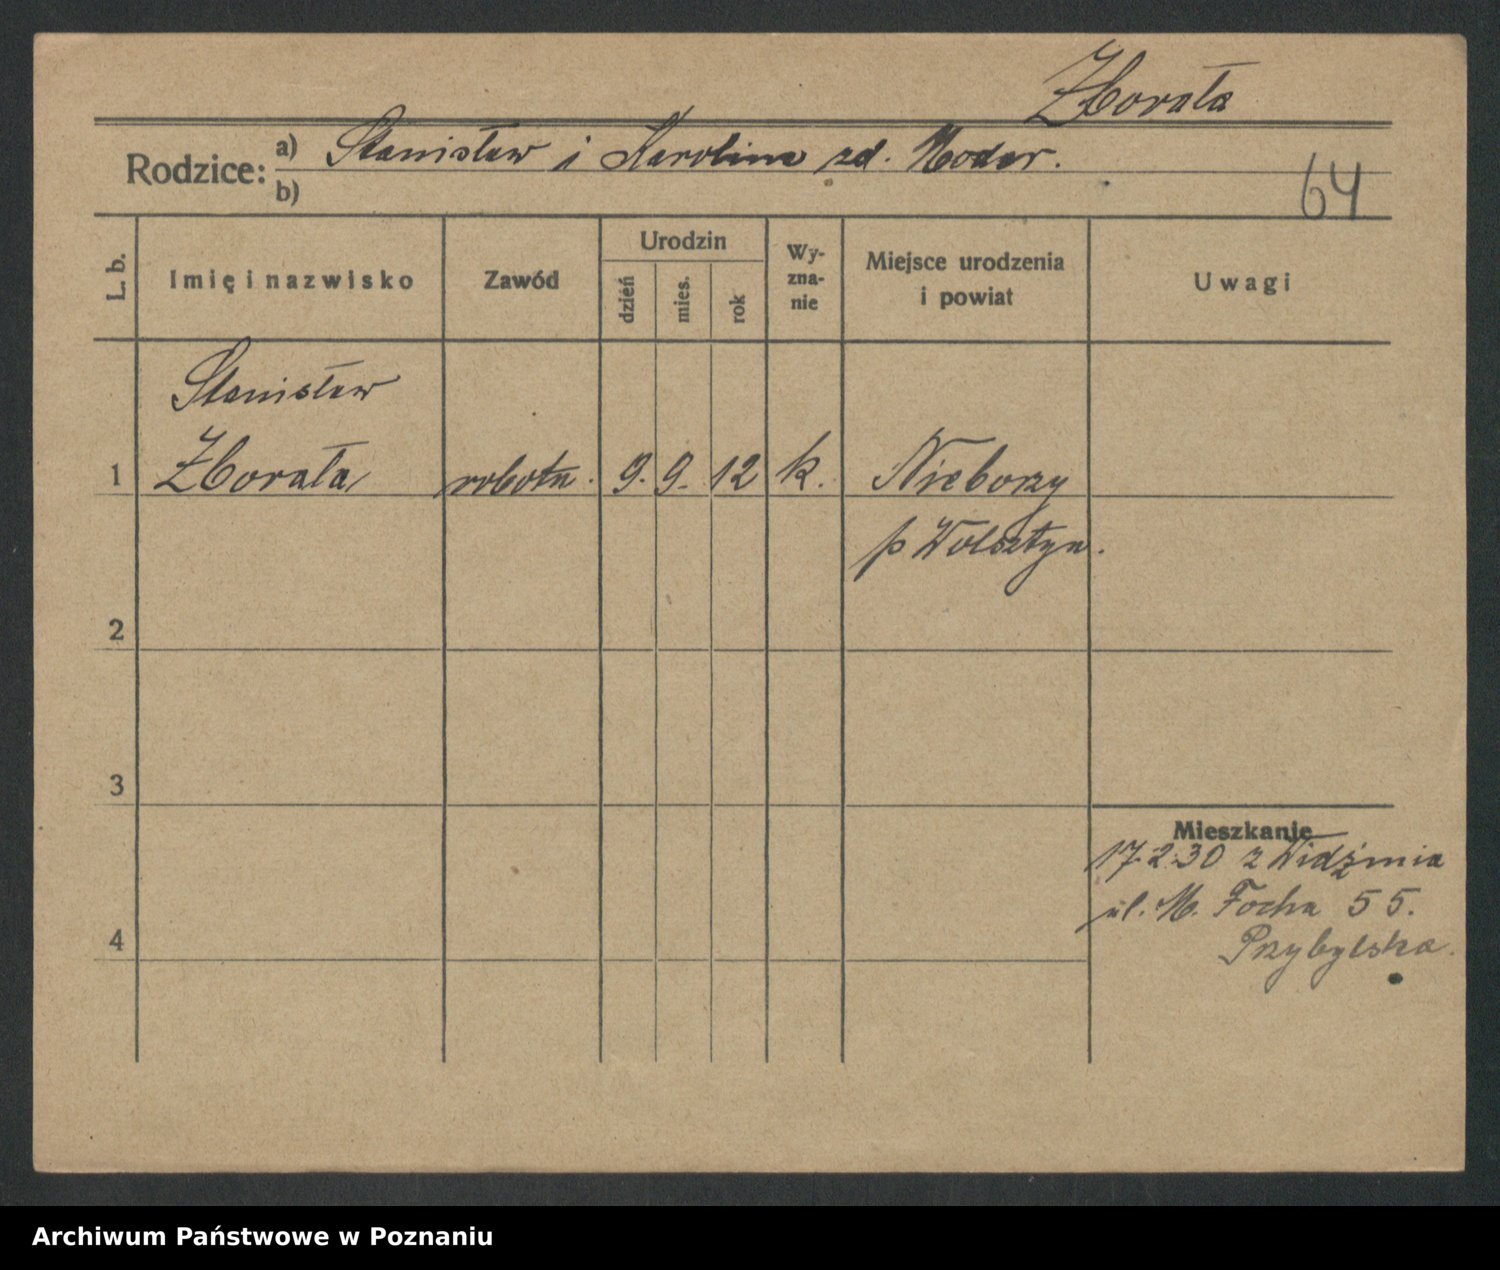 Zborała
Rodzice: a) Stanisław i Karolina zd. Modar.
b)
64
L. b.
Imię i nazwisko
Zawód
Urodzin
dzień
mies.
rok
Wy-
zna-
nie
Miejsce urodzenia
i powiat
Uwagi
Stanisław
1 Zborała robotn. 9. 9. 12 k. Nieborzy
p Wolsztyn.
2
3
Mieszkanie
17.2.30 z Widzimia
ul. M. Focha 55.
Przybylska.
4
Archiwum Państwowe w Poznaniu